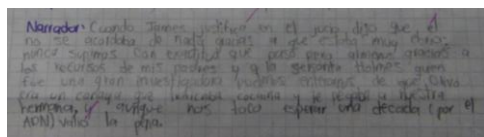 Narrador: Cuando James justifico en el juno dijo que el
no se acordaba de nada gracias a que estaba muy
nunca supimos con exactitud que paso pero gracias a
los recursos de mis padres y a la sargento Holmes quien
fue una gran investigadora pudimos enterarnos de que
era un que cocaina y le a nuestra
hermana, y aunque nos toco esperar una decada (por el
ADN) valio la pena.